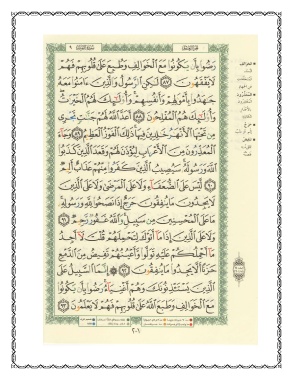 رَضُوا۟ بِأَن يَكُونُوا۟ مَعَ ٱلْخَوَالِفِ وَطُبِعَ عَلَىٰ قُلُوبِهِمْ فَهُمْ
لَا يَفْقَهُونَ ٨٧ لَٰكِنِ ٱلرَّسُولُ وَٱلَّذِينَ ءَامَنُوا۟ مَعَهُۥ
جَٰهَدُوا۟ بِأَمْوَٰلِهِمْ وَأَنفُسِهِمْ وَأُو۟لَٰٓئِكَ لَهُمُ ٱلْخَيْرَٰتُ
وَأُو۟لَٰٓئِكَ هُمُ ٱلْمُفْلِحُونَ ٨٨ أَعَدَّ ٱللَّهُ لَهُمْ جَنَّٰتٍ تَجْرِى
مِن تَحْتِهَا ٱلْأَنْهَٰرُ خَٰلِدِينَ فِيهَا ذَٰلِكَ ٱلْفَوْزُ ٱلْعَظِيمُ ٨٩ وَجَآءَ
ٱلْمُعَذِّرُونَ مِنَ ٱلْأَعْرَابِ لِيُؤْذَنَ لَهُمْ وَقَعَدَ ٱلَّذِينَ كَذَبُوا۟
ٱللَّهَ وَرَسُولَهُۥ سَيُصِيبُ ٱلَّذِينَ كَفَرُوا۟ مِنْهُمْ عَذَابٌ أَلِيمٌ
٩٠ لَّيْسَ عَلَى ٱلضُّعَفَآءِ وَلَا عَلَى ٱلْمَرْضَىٰ وَلَا عَلَى ٱلَّذِينَ
لَا يَجِدُونَ مَا يُنفِقُونَ حَرَجٌ إِذَا نَصَحُوا۟ لِلَّهِ وَرَسُولِهِۦ
مَا عَلَى ٱلْمُحْسِنِينَ مِن سَبِيلٍ وَٱللَّهُ غَفُورٌ رَّحِيمٌ ٩١
وَلَا عَلَى ٱلَّذِينَ إِذَا مَآ أَتَوْكَ لِتَحْمِلَهُمْ قُلْتَ لَآ أَجِدُ
مَآ أَحْمِلُكُمْ عَلَيْهِ تَوَلَّوا۟ وَّأَعْيُنُهُمْ تَفِيضُ مِنَ ٱلدَّمْعِ
حَزَنًا أَلَّا يَجِدُوا۟ مَا يُنفِقُونَ ٩٢ إِنَّمَا ٱلسَّبِيلُ عَلَى
ٱلَّذِينَ يَسْتَـْٔذِنُونَكَ وَهُمْ أَغْنِيَآءُ رَضُوا۟ بِأَن يَكُونُوا۟
مَعَ ٱلْخَوَالِفِ وَطَبَعَ ٱللَّهُ عَلَىٰ قُلُوبِهِمْ فَهُمْ لَا يَعْلَمُونَ ٩٣
٢٠١